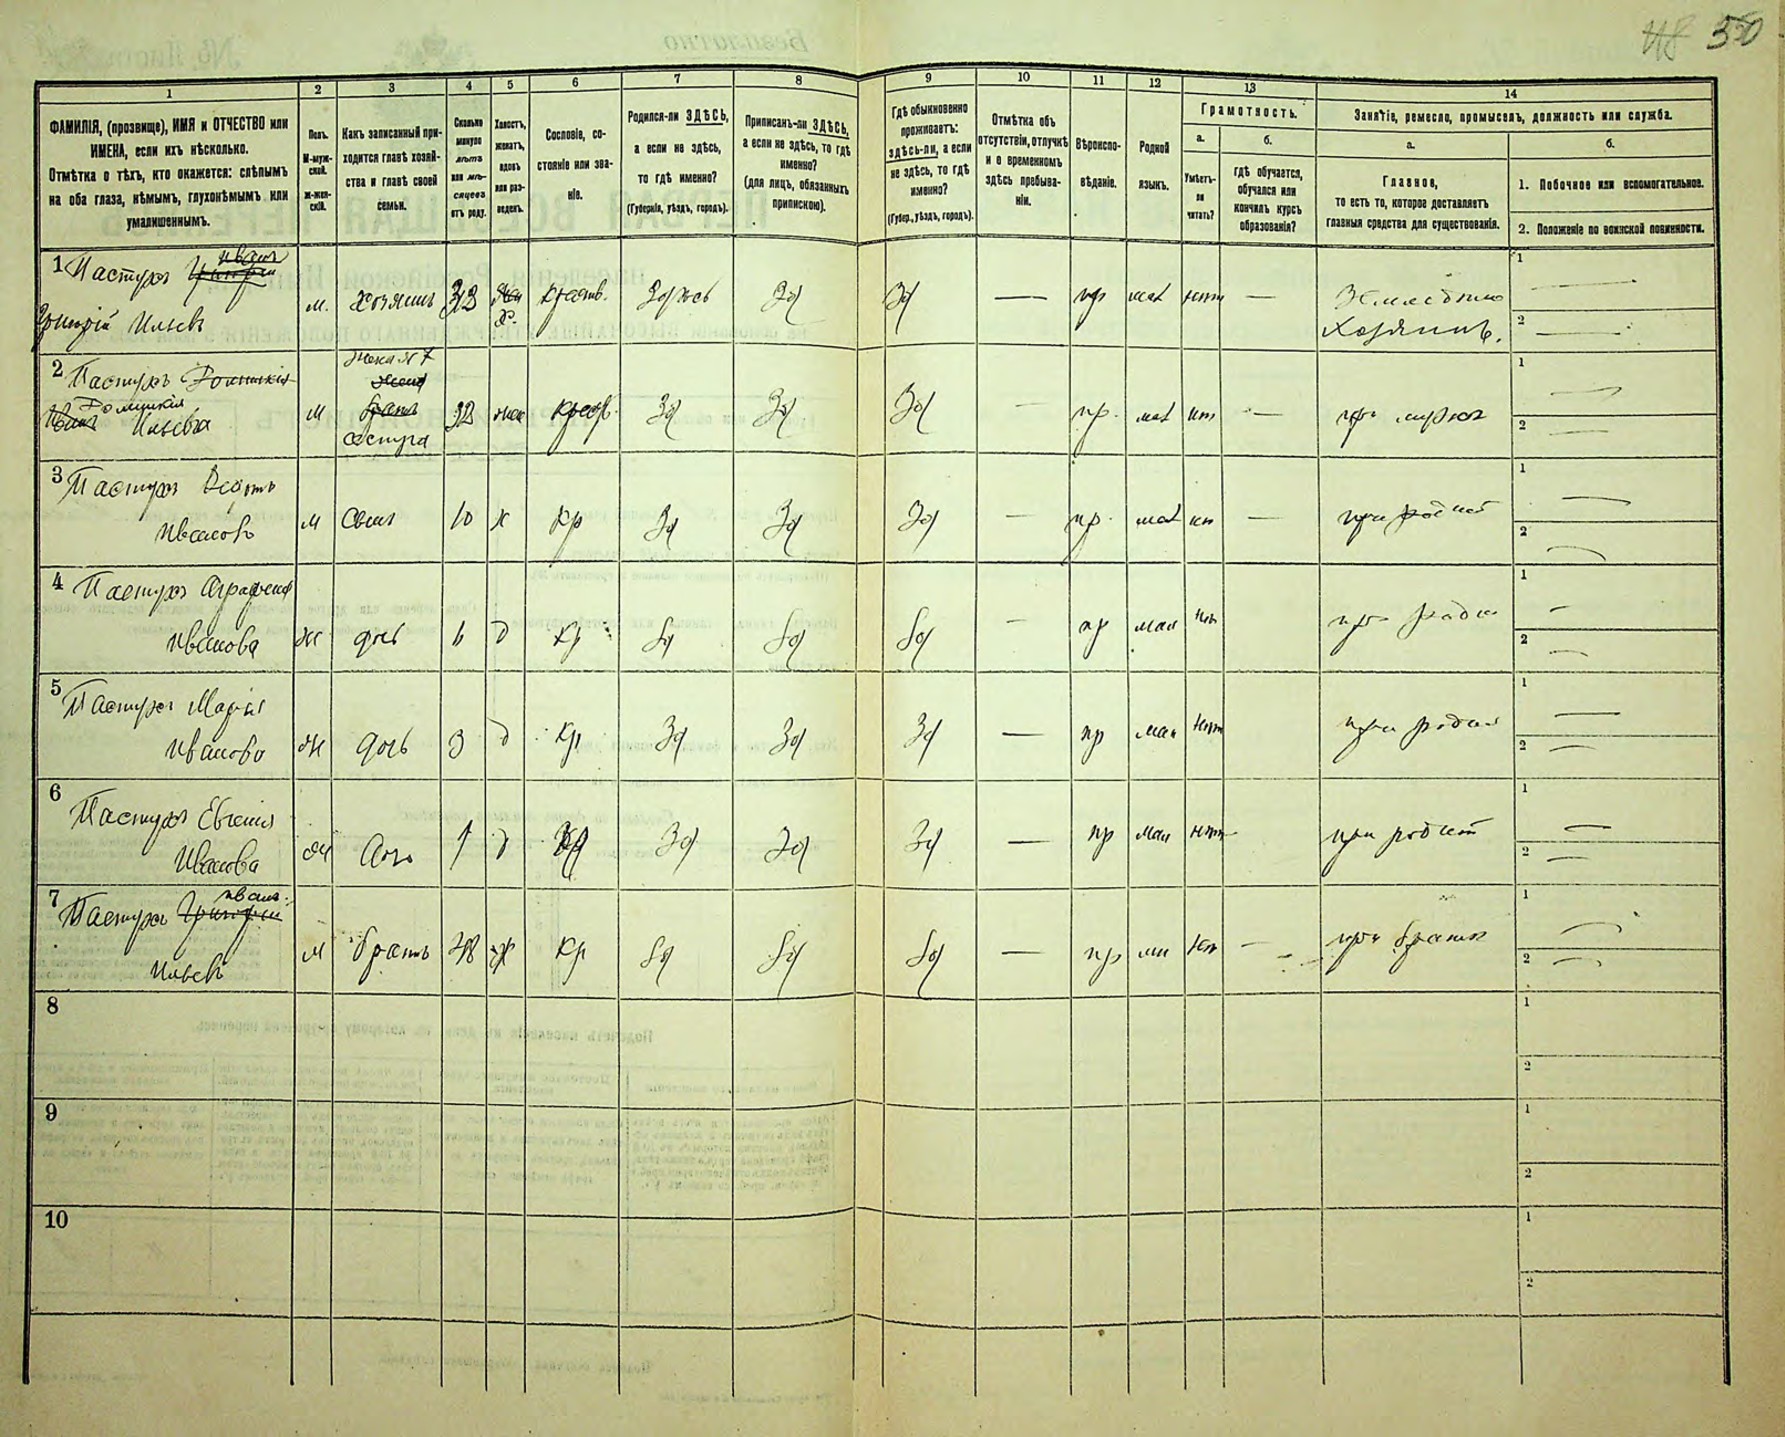 118 350
1
2
3
4
5
6
7
8
9
10
11
12
13
14
ФАМИЛІЯ, (прозвище), ИМЯ и ОТЧЕСТВО или
ИМЕНА, если ихъ нѣсколько.
Отмѣтка о тѣхъ, кто окажется: слѣпымъ
на оба глаза, нѣмымъ, глухонѣмымъ или
умалишеннымъ.
Полъ.
М-муж-
ской.
ж-жен-
скій.
Какъ записанный при-
ходится главѣ хозяй-
ства и главѣ своей
семьи.
Сколько
минуло
лѣтъ
или мѣ-
сяцевъ
отъ роду.
Холостъ,
женатъ,
вдовъ
или раз-
веденъ.
Сословіе, со-
стояніе или зва-
ніе.
Родился-ли ЗДѢСЬ,
а если не здѣсь,
то гдѣ именно?
(Губернія, уѣздъ, городъ).
Приписанъ-ли ЗДѢСЬ,
а если не здѣсь, то гдѣ
именно?
(для лицъ, обязанныхъ
припискою).
Гдѣ обыкновенно
проживаетъ:
здѣсь-ли, а если
не здѣсь, то гдѣ
именно?
(Губер., уѣздъ, городъ).
Отмѣтка объ
отсутствіи, отлучкѣ
и о временномъ
здѣсь пребыва-
ніи.
Вѣроиспо-
вѣданіе.
Родной
языкъ.
Грамотность.
а.
Умѣетъ-
ли
читать?
б.
гдѣ обучается,
обучался или
кончилъ курсъ
образованія?
Занятіе, ремесло, промыселъ, должность или служба.
а.
Главное,
то есть то, которое доставляетъ
главныя средства для существованія.
б.
1. Побочное или вспомогательное.
2. Положеніе по воинской повинности.
1 Пастухъ Григорій Иванъ
Григорій Ильевъ
м. хозяинъ 32 х. крестьян. Здѣсь Зд Зд — пр мал нетъ —
Хозяинъ.
1 —
2 —
2 Пастухъ
Ильева
м жена № 7
жена
братъ
сестра
32 жен Зд Зд Зд — пр. мал нет —
1 —
2 —
3 Пастухъ
Ивановъ
м сынъ 10 х кр Зд Зд Зд — пр. мал нет —
1 —
2 —
4 Пастухъ Аграфена
Иванова
ж дочь 6 д кр Зд Зд Зд — пр мал нет
1 —
2 —
5 Пастухъ Марія
Иванова
ж дочь 3 д кр Зд Зд Зд — пр мал нетъ при родит
1 —
2 —
6 Пастухъ Евгенія
Иванова
ж дочь 1 д кр Зд Зд Зд — пр мал нетъ при родит
1 —
2 —
7 Пастухъ Григорій Иванъ
Ильевъ
м братъ кр Зд Зд Зд — пр мал нет — при братѣ
1 —
2 —
8
1
2
9
1
2
10
1
2